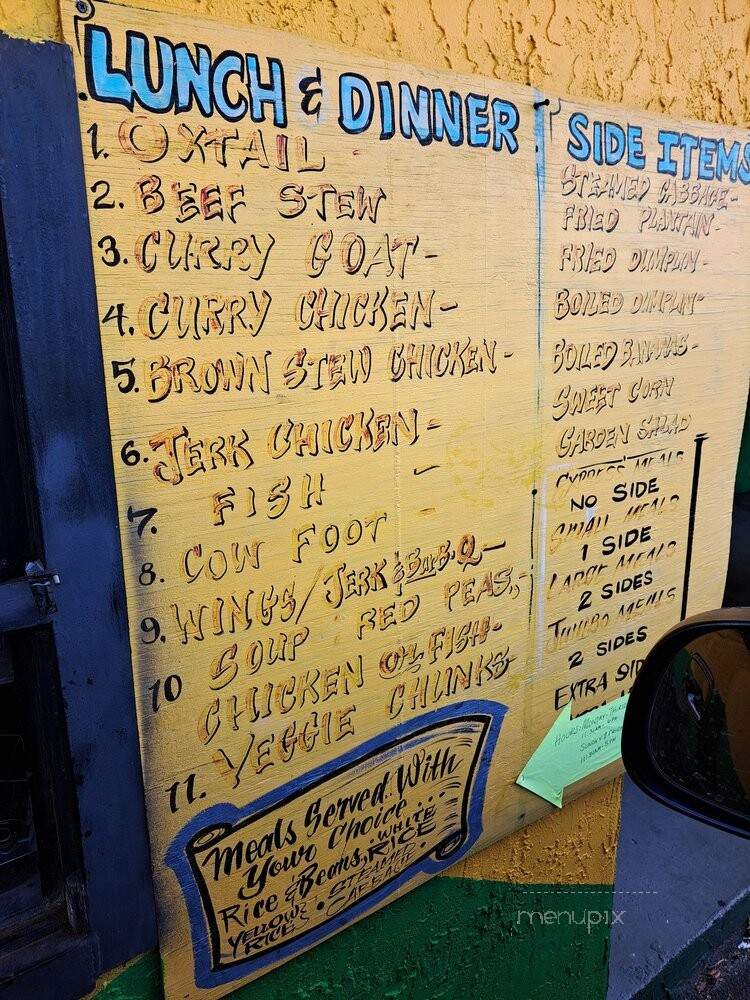 LUNCH & DINNER
1. OXTAIL
2. BEEF STEW
3. CURRY GOAT-
4. CURRY CHICKEN-
5. BROWN STEW CHICKEN-
6. JERK CHICKEN-
7. FISH -
8. COW FOOT
9. WINGS/JERK & BarB-Q-
10 SOUP RED PEAS,-
CHICKEN Or FISH-
11. VEGGIE CHUNKS
Meals Served With
Your Choice...
Rice & Beans, WHITE RICE
YELLOW RICE • STEAMED CABBAGE.
SIDE ITEMS
STEAMED CABBAGE-
FRIED PLANTAIN-
FRIED DUMPLIN-
BOILED DUMPLIN-
BOILED BANANAS-
SWEET CORN
GARDEN SALAD
EXPRESS MEALS
NO SIDE
SMALL MEALS
1 SIDE
LARGE MEALS
2 SIDES
JUMBO MEALS
2 SIDES
EXTRA
HOURS:
menupix